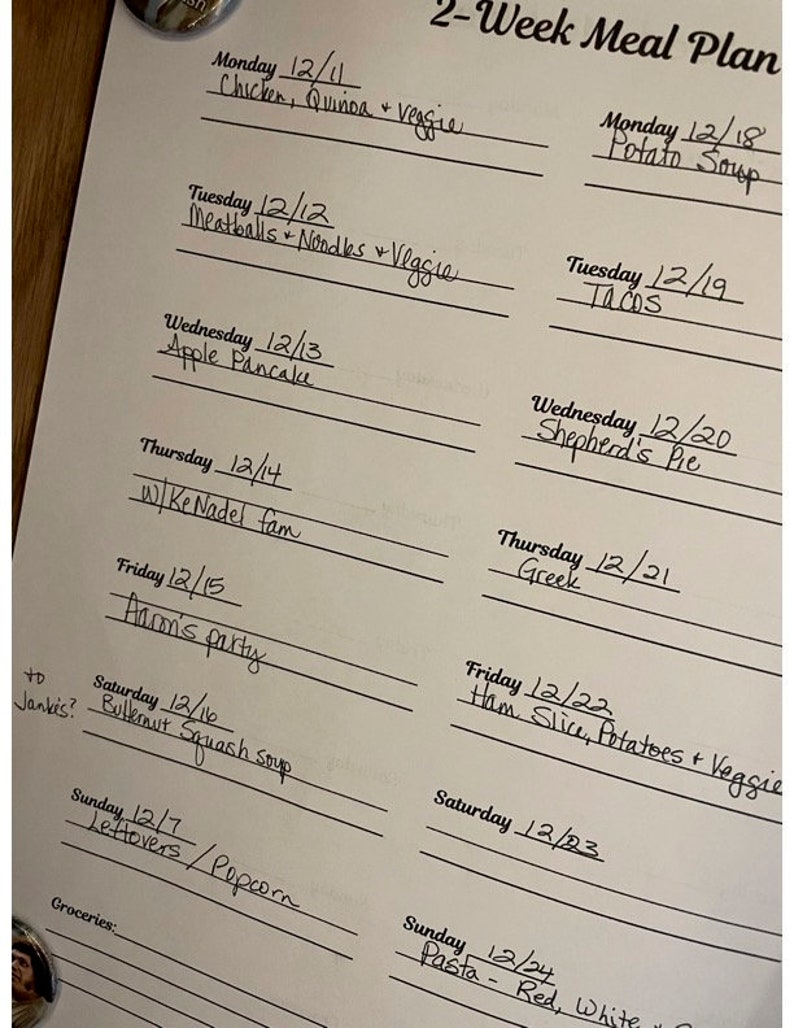 2-Week Meal Plan
Monday 12/11
Chicken, Quinoa + Veggie
Tuesday 12/12
Meatballs + Noodles + Veggie
Wednesday 12/13
Apple Pancake
Thursday 12/14
w/KeNadel fam
Friday 12/15
Aaron's party
to
Jankes?
Saturday 12/16
Butternut Squash soup
Sunday 12/7
Leftovers / Popcorn
Groceries:
Monday 12/18
Potato Soup
Tuesday 12/19
Tacos
Wednesday 12/20
Shepherd's Pie
Thursday 12/21
Greek
Friday 12/22
Ham Slice, Potatoes + Veggie
Saturday 12/23
Sunday 12/24
Pasta - Red, White +